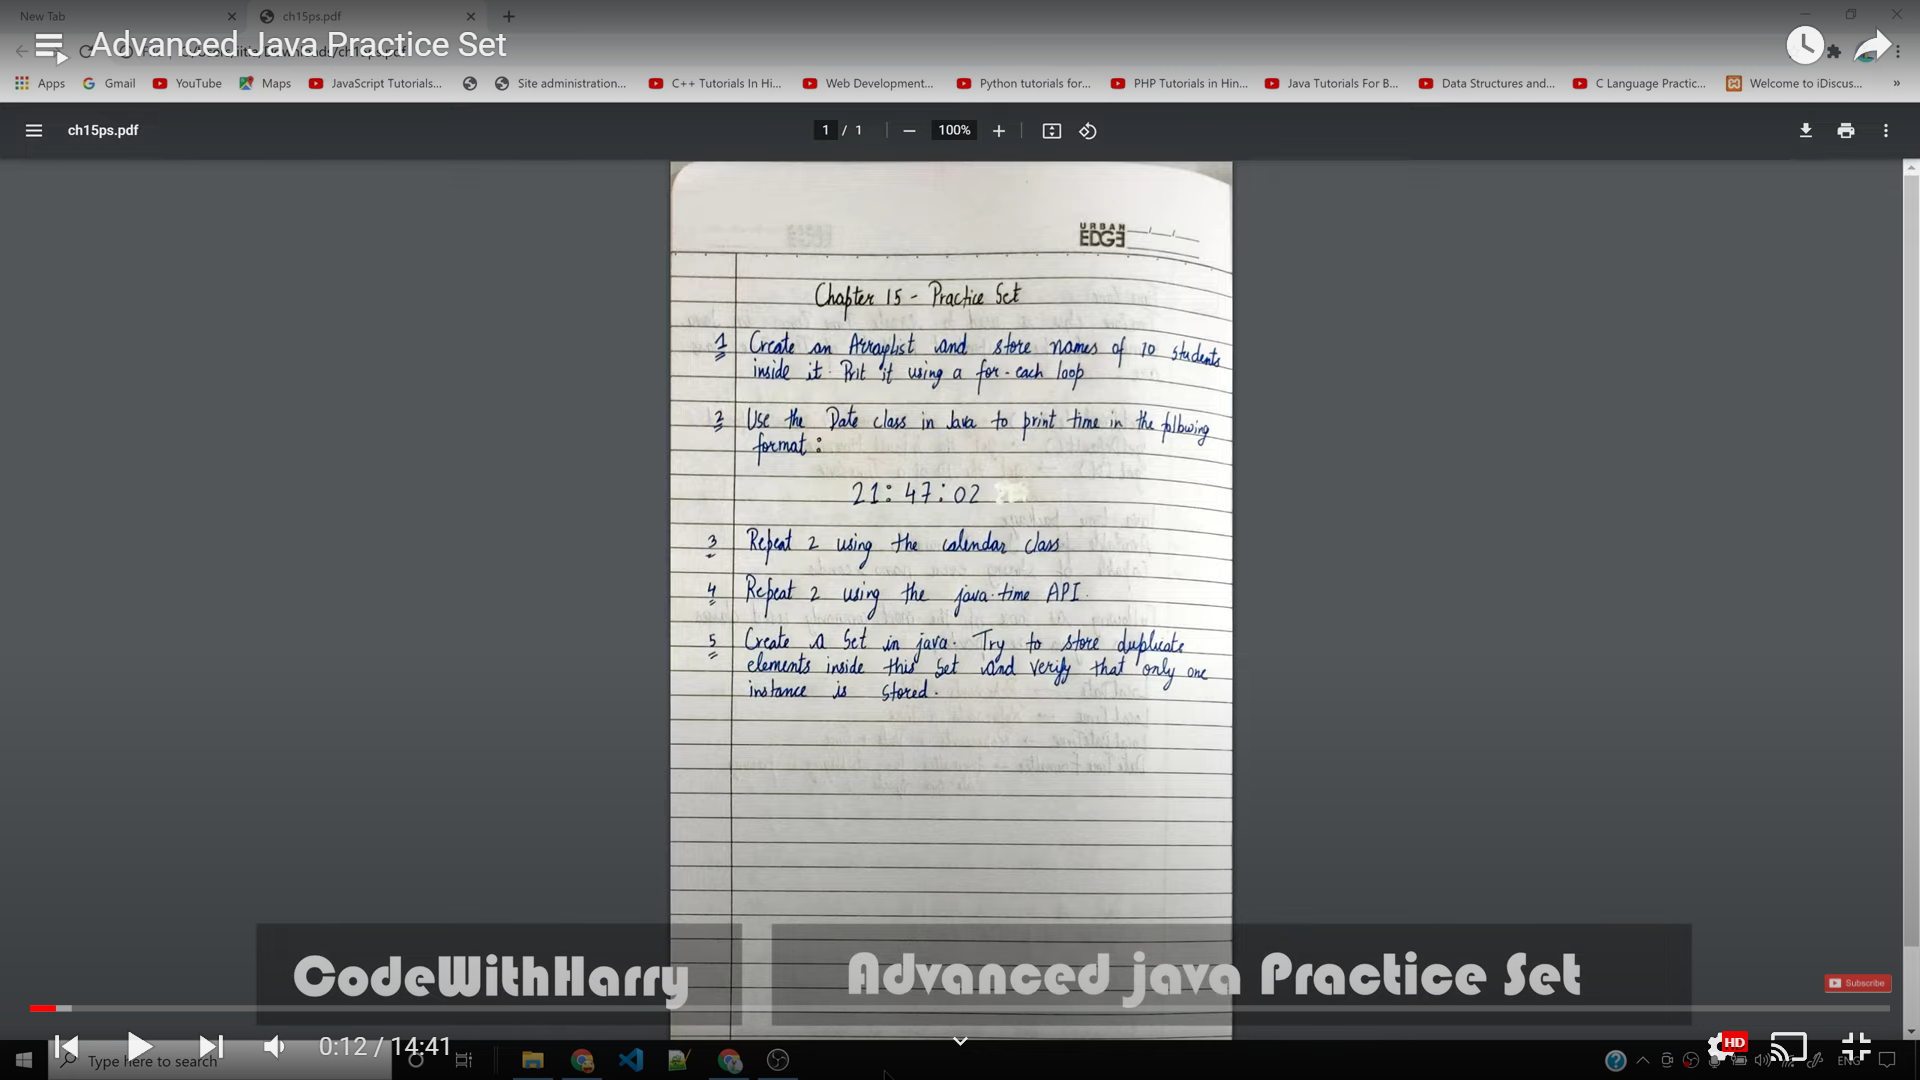 New Tab
ch15ps.pdf
Advanced Java Practice Set
Apps
Gmail
YouTube
Maps
JavaScript Tutorials...
Site administration...
C++ Tutorials In Hi...
Web Development...
Python tutorials for...
PHP Tutorials in Hin...
Java Tutorials For B...
Data Structures and...
C Language Practic...
Welcome to iDiscus...
»
ch15ps.pdf
1 / 1
100%
URBAN
EDGE
Chapter 15 - Practice Set
1 Create an Arraylist and store names of 10 students
inside it. Prit it using a for-each loop
2 Use the Date class in Java to print time in the following
format :
21: 47: 02
3 Repeat 2 using the calendar class
4 Repeat 2 using the java.time API.
5 Create a Set in java. Try to store duplicate
elements inside this set and verify that only one
instance is stored.
CodeWithHarry
Advanced java Practice Set
Subscribe
0:12 / 14:41
HD
Type here to search
ENG